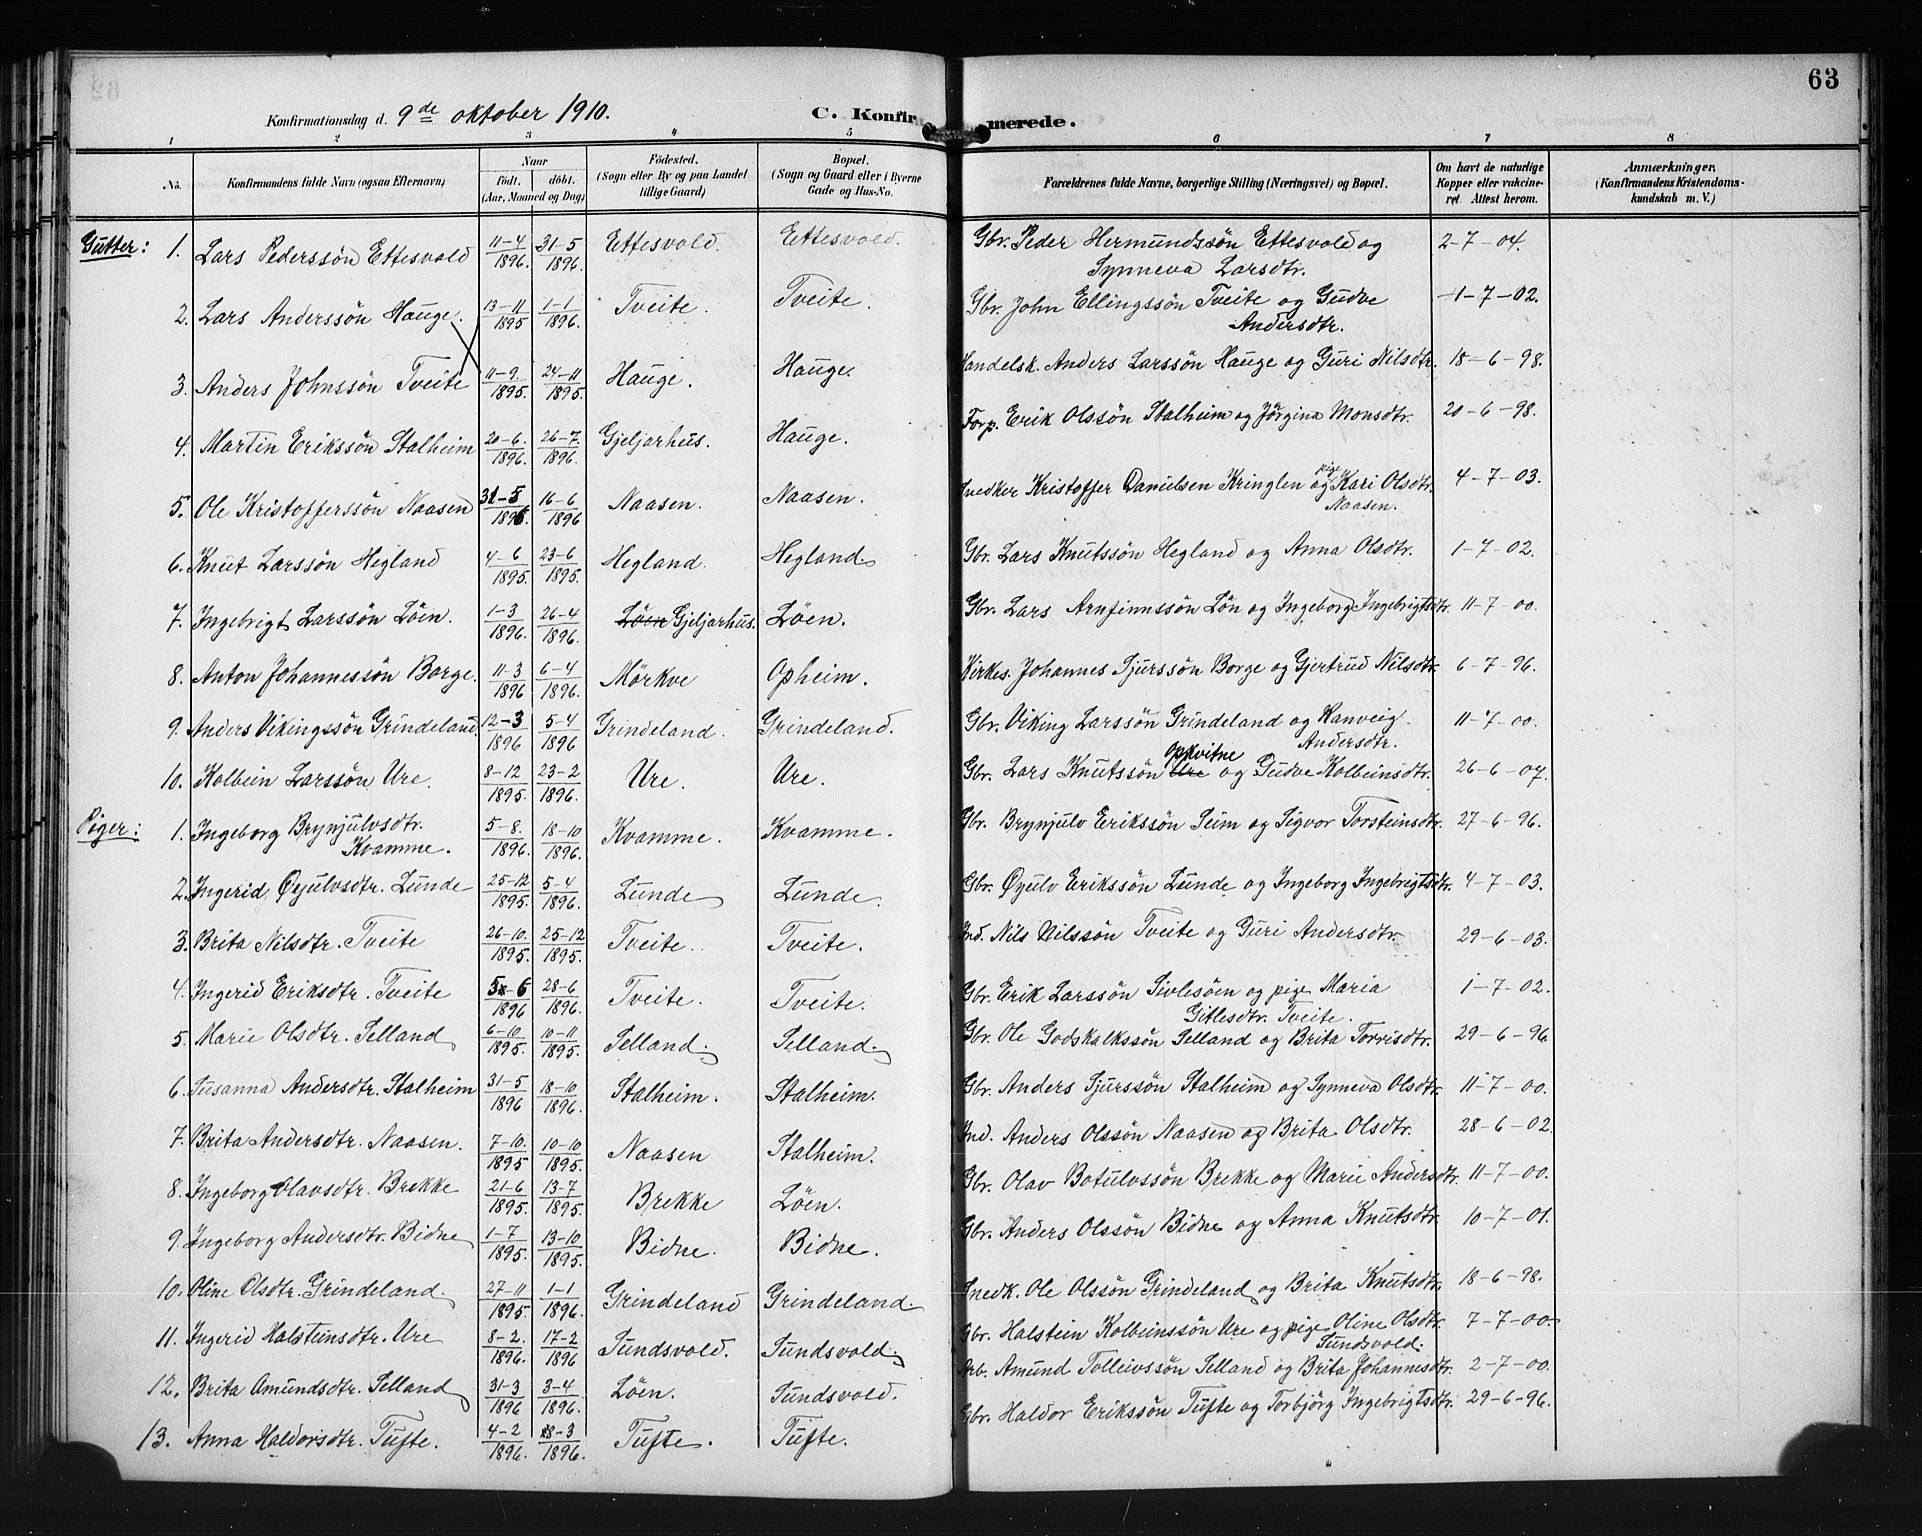 63
Konfirmationsdag d. 9de oktober 1910. C. Konfirmerede.
1 2 3 4 5 6 7 8
No. Konfirmandens fulde Navn (ogsaa Efternavn) Naar født. døbt. (Aar, Maaned og Dag) Fødested. (Sogn eller By og paa Landet tillige Gaard) Bopæl. (Sogn og Gaard eller i Byerne Gade og Hus-No. Forældrenes fulde Navne, borgerlige Stilling (Næringsvei) og Bopæl. Om havt de naturlige Kopper eller vakcineret Attest herom. Anmærkninger. (Konfirmandens Kristendomskundskab m. V.)
Gutter: 1. Lars Pederssön Ettesvold 11-4 1896. 31-5 1896. Ettesvold. Ettesvold. Gbr. Peder Hermundssön Ettesvold og Synneva Larsdtr. 2-7-04.
2. Lars Anderssön Hauge. 13-11 1895 1-1 1896. Tveite. Tveite. Gbr. John Ellingssön Tveite og Gudve Andersdtr. 1-7-02.
3. Anders Johnssön Tveite 11-9. 1895. 24-11 1895. Hauge. Hauge. Handelsk. Anders Larssön Hauge og Guri Nilsdtr. 18-6-98.
4. Martin Erikssön Stalheim 20-6. 1896. 26-7. 1896. Gjeljarhus. Hauge. Forp. Erik Olssön Stalheim og Jörgina Monsdtr. 20-6-98.
5. Ole Kristofferssön Naasen 31-5 1896. 16-6 1896 Naasen. Naasen. Snedker Kristoffer Danielsen Kringlen og pige Kari Olsdtr. Naasen. 4-7-03.
6. Knut Larssön Hegland 4-6 1895. 23-6 1895. Hegland. Hegland Gbr. Lars Knutssön Hegland og Anna Olsdtr. 1-7-02.
7. Ingebrigt Larssön Löen. 1-3 1896. 26-4 1896. Löen Gjeljarhus. Löen. Gbr. Lars Arnfinnssön Lön og Ingeborg Ingebrigtsdtr. 11-7-00.
8. Anton Johannessön Borge. 11-3 1896 6-4 1896. Mörkve Opheim. Kirkes. Johannes Sjurssön Borge og Gjertrud Nilsdtr. 6-7-96.
9. Anders Vikingssön Grindeland. 12-3 1896 5-4 1896 Grindeland. Grindeland. Gbr. Viking Larssön Grindeland og Ranveig Andersdtr. 11-7-00.
10. Kolbein Larssön Ure. 8-12 1895. 23-2 1896. Ure. Ure. Gbr. Lars Knutssön Ure Opkvitne og Gudve Kolbeinsdtr. 26-6-07.
Piger: 1. Ingeborg Brynjulvsdtr. Kvamme. 5-8. 1896. 18-10 1896. Kvamme. Kvamme. Gbr. Brynjulv Erikssön Seim og Sigvor Torsteinsdtr. 27-6-96.
2. Ingerid Øyulvsdtr. Lunde 25-12 1895. 5-4 1896. Lunde Lunde. Gbr. Øyulv Erikssön Lunde og Ingeborg Ingebrigtsdtr. 4-7-03.
3. Brita Nilsdtr. Tveite 26-10. 1895. 25-12 1895. Tveite. Tveite. Ind. Nils Nilssön Tveite og Guri Andersdtr. 29-6-03.
4. Ingerid Eriksdtr. Tveite 5-6 1896 28-6 1896. Tveite. Tveite. Gbr. Erik Larssön Sivlesöen og pige Maria Gitlesdtr. Tveite. 1-7-02.
5. Marie Olsdtr. Selland 6-10. 1895. 10-11 1895. Selland. Selland. Gbr. Ole Godskalkssön Selland og Brita Torrisdtr. 29-6-96
6. Susanna Andersdtr. Stalheim 31-5 1896 18-10 1896. Stalheim. Stalheim. Gbr. Anders Sjurssön Stalheim og Synneva Olsdtr. 11-7-00.
7. Brita Andersdtr. Naasen. 7-10. 1895 10-10 1895. Naasen Stalheim. Ind. Anders Olssön Naasen og Brita Olsdtr. 28-6-02.
8. Ingeborg Olavsdtr. Brekke 21-6 1895. 13-7 1895. Brekke Löen. Gbr. Olav Botulvssön Brekke og Marie Andersdtr. 11-7-00.
9. Ingeborg Andersdtr. Bidne 1-7 1895. 13-10 1895. Bidne. Bidne. Gbr. Anders Olssön Bidne og Anna Knutsdtr. 10-7-01.
10. Oline Olsdtr. Grindeland. 27-11 1895. 1-1 1896. Grindeland Grindeland. Snedk. Ole Olssön Grindeland og Brita Knutsdtr. 18-6-98.
11. Ingerid Halsteinsdtr. Ure 8-2. 1896. 17-2 1896 Sundsvold. Sundsvold. Gbr. Halstein Kolbeinssön Ure og pige Oline Olsdtr. Sundsvold. 7-7-00.
12. Brita Amundsdtr. Selland 31-3 1896 3-4 1896. Löen. Sundsvold. Arb. Amund Tolleivssön Selland og Brita Johannesdtr. 2-7-00.
13. Anna Haldorsdtr. Tufte. 4-2 1896. 8-3 1896. Tufte. Tufte. Gbr. Haldor Erikssön Tufte og Torbjörg Ingebrigtsdtr. 29-6-96.